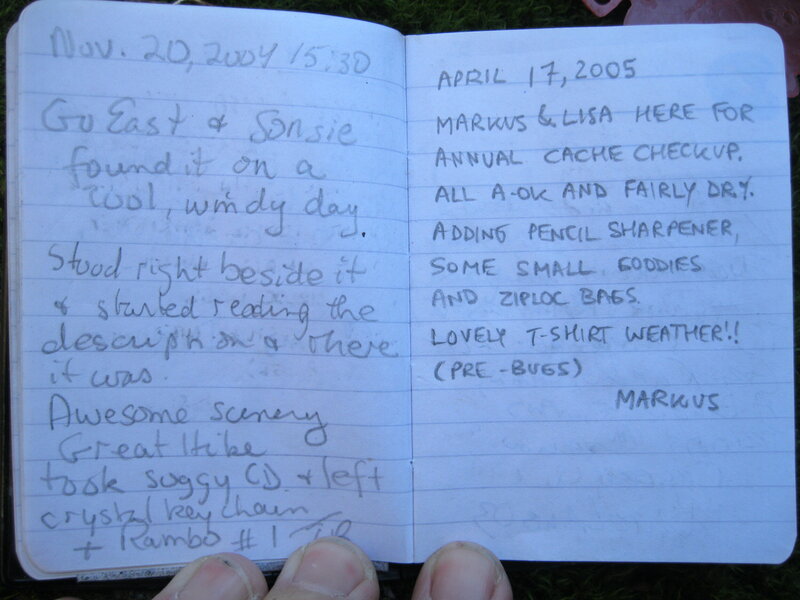 Nov. 20, 2004 15:30
Go East & Sonsie
found it on a
cool, windy day.
Stood right beside it
& started reading the
description & there
it was.
Awesome scenery
Great Hike
took soggy CD & left
crystal key chain
+ Rambo # 1 TB
APRIL 17, 2005
MARKUS & LISA HERE FOR
ANNUAL CACHE CHECKUP.
ALL A-OK AND FAIRLY DRY.
ADDING PENCIL SHARPENER,
SOME SMALL GOODIES
AND ZIPLOC BAGS.
LOVELY T-SHIRT WEATHER!!
(PRE-BUGS)
MARKUS